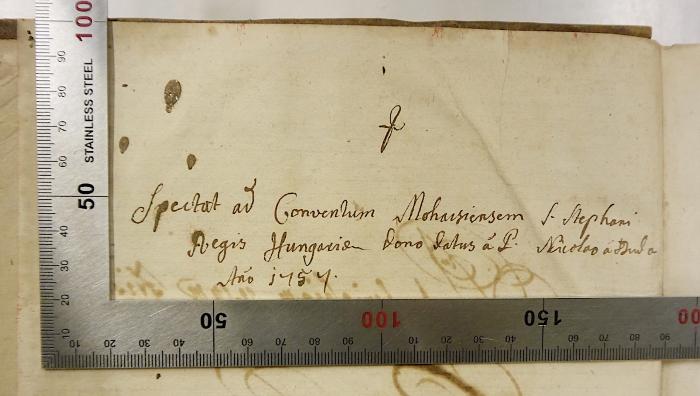 100
90
80
70
60
50
40
30
20
10
STAINLESS STEEL
Spectat ad Conventum Mohacsiensem S. Stephani
Regis Hungariae dono datus á P. Nicolao á Buda
Año 1757.
50 100 150
10 20 30 40 60 70 80 90 10 20 30 40 60 70 80 90